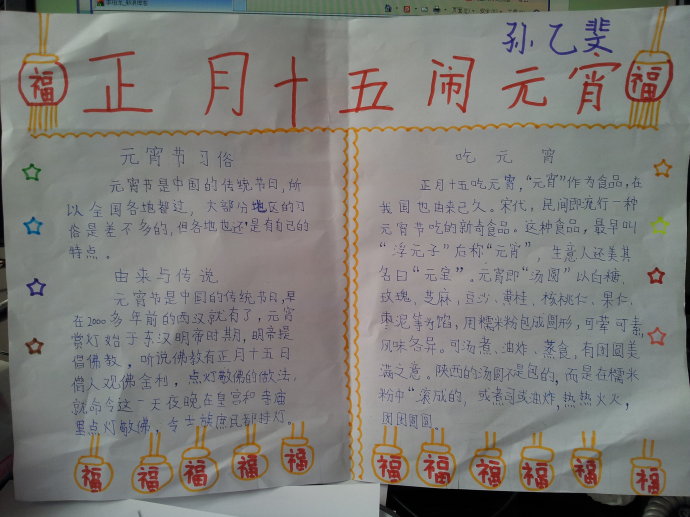 孙乙斐
正月十五闹元宵
福
福
元宵节习俗
元宵节是中国的传统节日,所
以全国各地都过,大部份地区的习
俗是差不多的,但各地也还是有自己的
特点。
由来与传说
元宵节是中国的传统节日,早
在2000多年前的西汉就有了,元宵
赏灯始于东汉明帝时期,明帝提
倡佛教,听说佛教有正月十五日
僧人观佛舍利,点灯敬佛的做法,
就命令这一天夜晚在皇宫和寺庙
里点灯敬佛,令士族庶民都挂灯。
吃元宵
正月十五吃元宵,“元宵”作为食品,在
我国也由来已久。宋代,民间即流行一种
元宵节吃的新奇食品。这种食品,最早叫
“浮元子”后称“元宵”,生意人还美其
名曰“元宝”。元宵即“汤圆”以白糖、
玫瑰、芝麻,豆沙、黄桂、核桃仁、果仁、
枣泥等为馅,用糯米粉包成圆形,可荤可素,
风味各异。可汤煮、油炸、蒸食,有团圆美
满之意。陕西的汤圆不是包的,而是在糯米
粉中“滚成的,或煮司或油炸,热热火火,
团团圆圆。
福 福 福 福 福
福 福 福 福 福 福